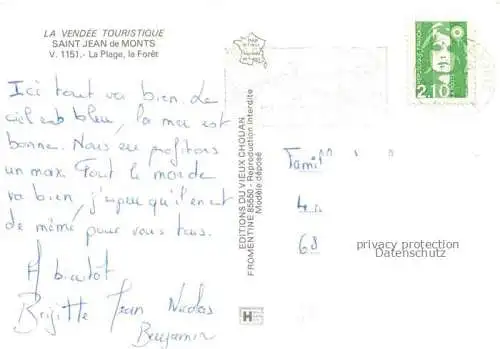 LA VENDÉE TOURISTIQUE
SAINT JEAN de MONTS
V. 1151.- La Plage, la Forêt
Ici tout va bien. Le
ciel est bleu, la mer est
bonne. Nous en profitons
un max. Tout le monde
va bien, j'espère qu'il en est
de même pour vous tous.
A bientôt
Brigitte Jean Nicolas
Benjamin
EDITIONS DU VIEUX CHOUAN
FROMENTINE 85550 - Reproduction interdite
Modèle déposé
2,10
Famil
68
privacy protection
Datenschutz